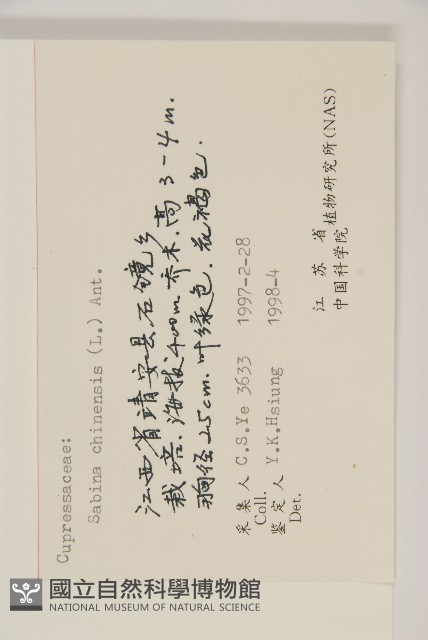 Cupressaceae:
Sabina chinensis (L.) Ant.
江西省靖安县石镜乡
栽培.海拔400m.乔木.高3-4m.
胸径25cm.叶绿色.花褐色.
采集人 C.S.Ye 3633 1997-2-28
Coll.
鉴定人 Y.K.Hsiung 1998-4
Det.
江苏省植物研究所(NAS)
中国科学院
國立自然科學博物館
NATIONAL MUSEUM OF NATURAL SCIENCE